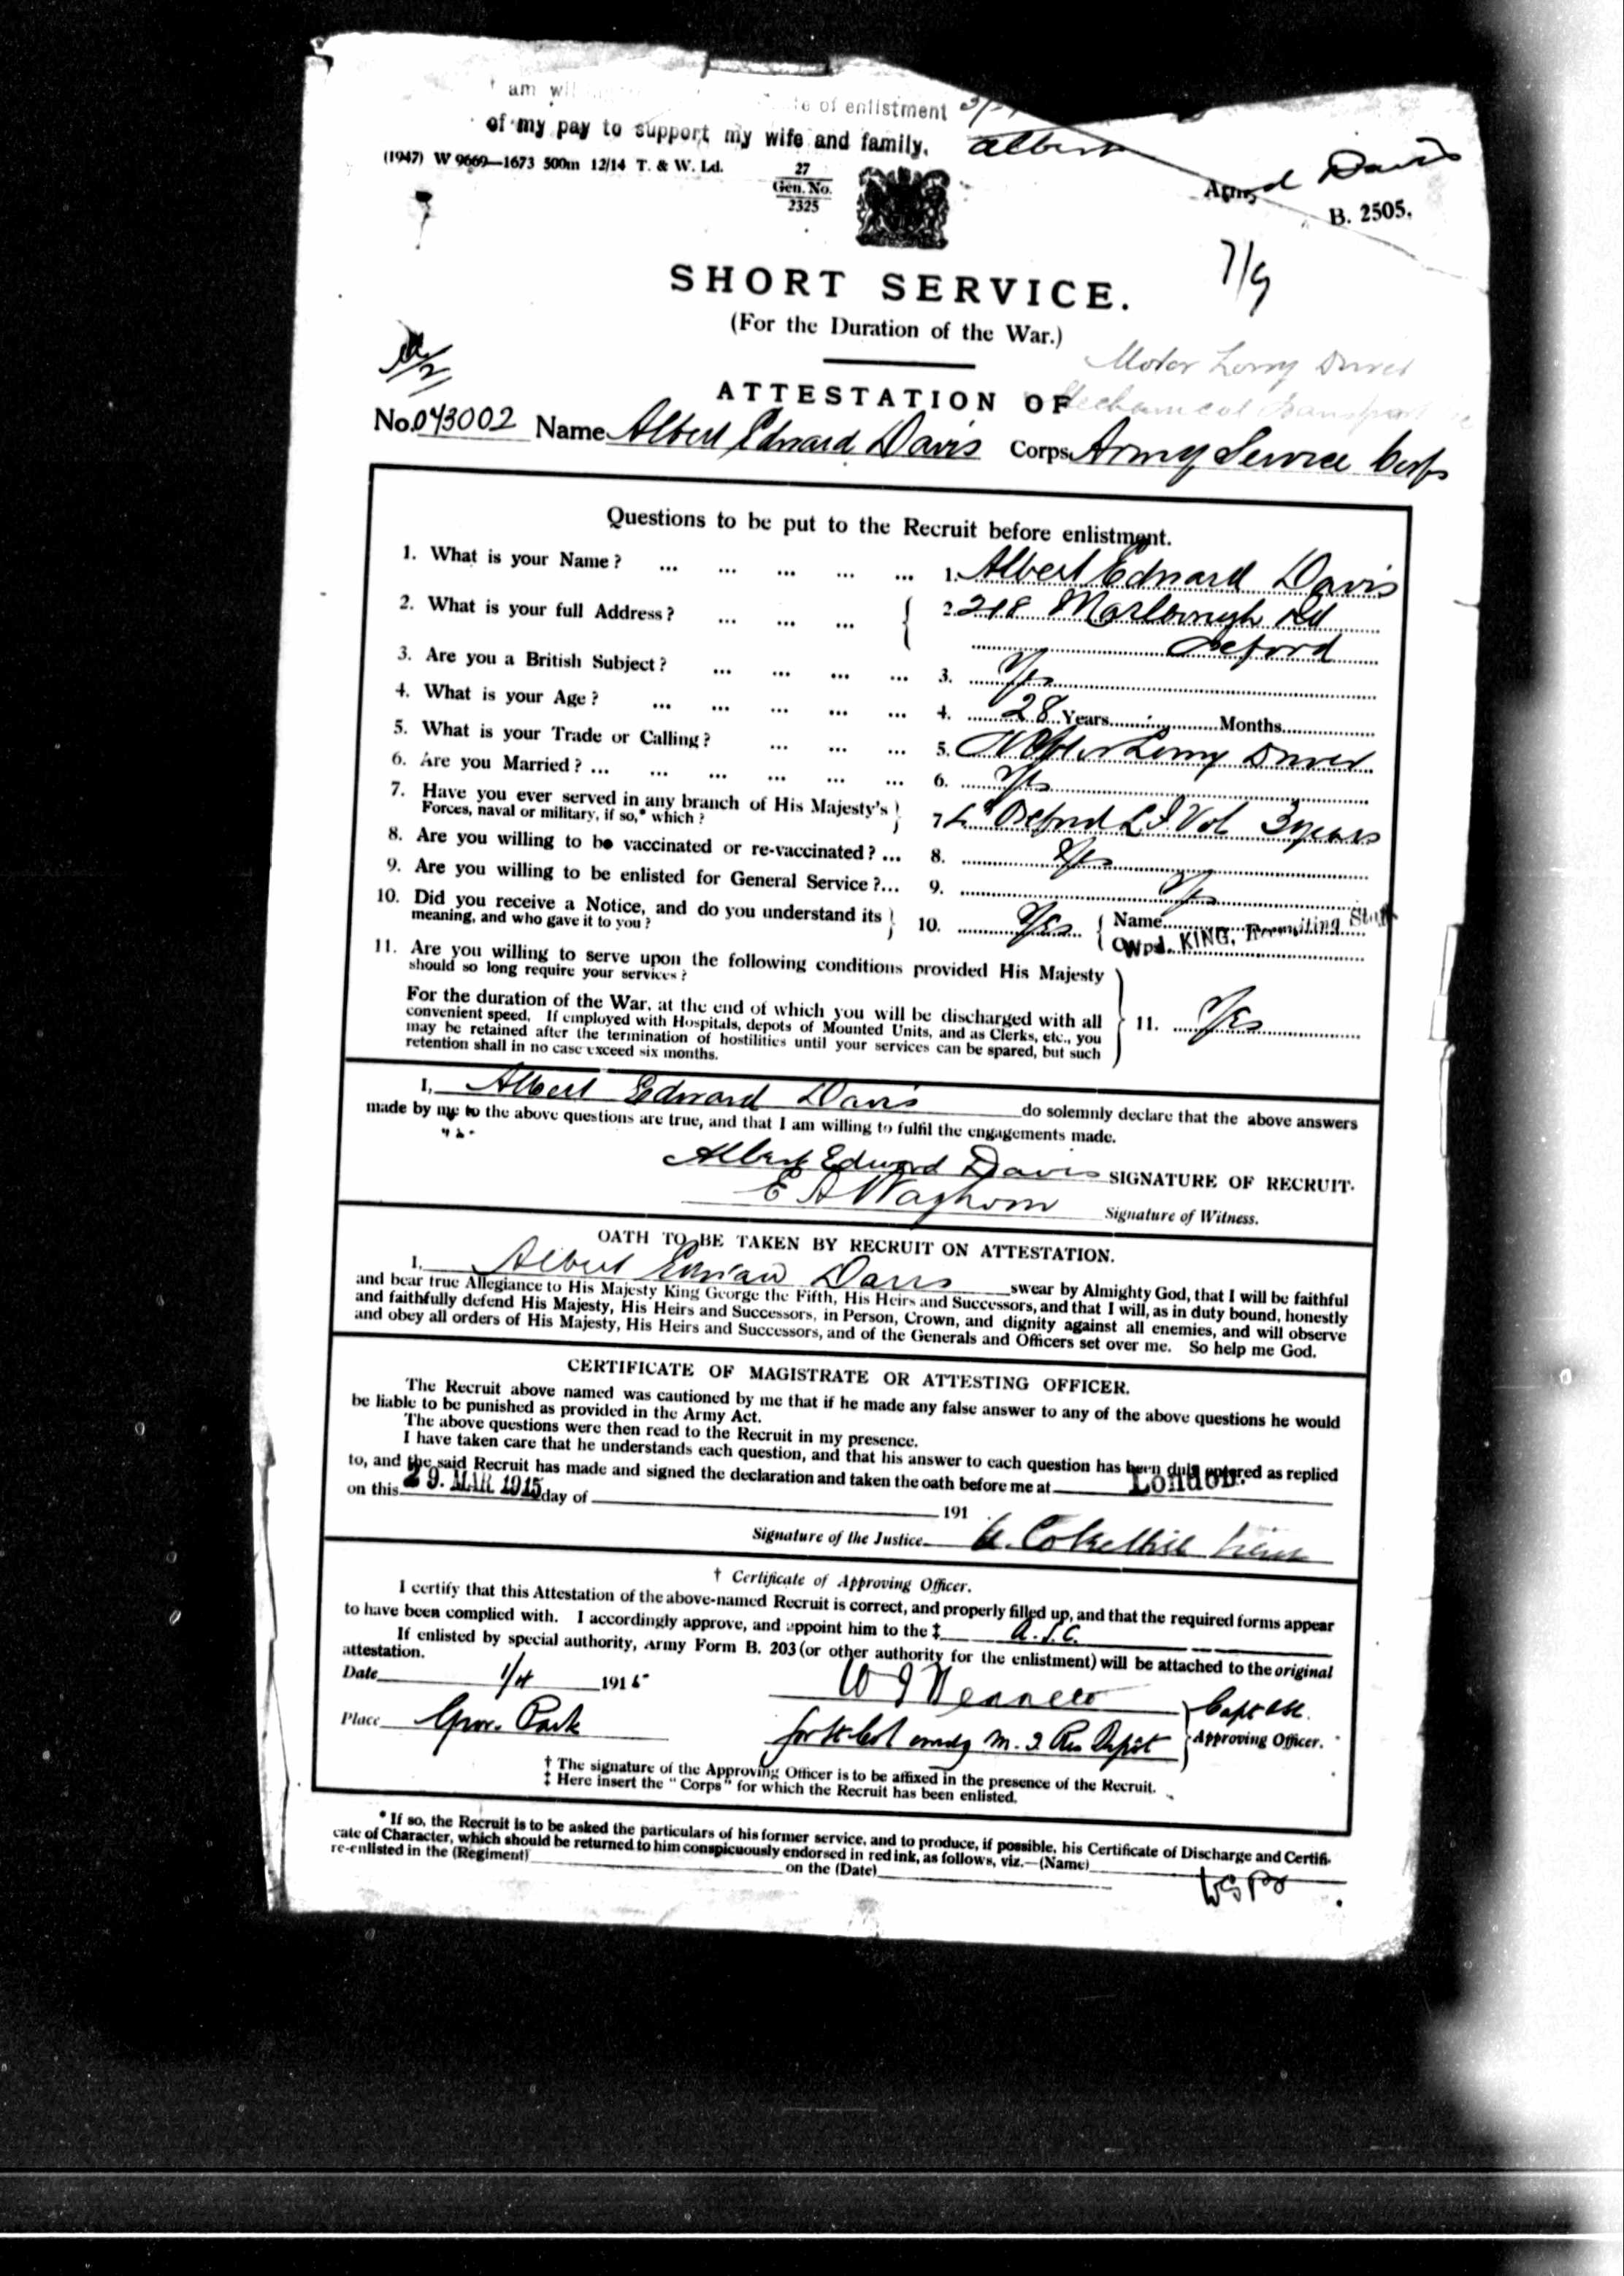 I am wil
te of enlistment
of my pay to support my wife and family. Albert
Davis
(1947) W 9669—1673 500m 12/14 T. & W. Ld. 27 Gen. No. 2325
Army
B. 2505.
7/9
SHORT SERVICE.
(For the Duration of the War.)
Motor Lorry Driver
ATTESTATION OF Mechanical Transport
No. 043002 Name Albert Edward Davis Corps Army Service Corps
Questions to be put to the Recruit before enlistment.
1. What is your Name? ... ... ... ... ... 1. Albert Edward Davis
2. What is your full Address? ... ... ... { 2. 218 Marlborough Rd
Oxford
3. Are you a British Subject? ... ... ... ... 3. Yes
4. What is your Age? ... ... ... ... ... 4. 28 Years Months
5. What is your Trade or Calling? ... ... ... 5. Motor Lorry Driver
6. Are you Married? ... ... ... ... ... ... 6. Yes
7. Have you ever served in any branch of His Majesty's }
Forces, naval or military, if so,* which? 7. Oxford L.I. Vol 3 years
8. Are you willing to be vaccinated or re-vaccinated? ... 8. Yes
9. Are you willing to be enlisted for General Service?... 9. Yes
10. Did you receive a Notice, and do you understand its }
meaning, and who gave it to you? 10. Yes { Name
Corps KING, Recruiting Staff
11. Are you willing to serve upon the following conditions provided His Majesty
should so long require your services?
For the duration of the War, at the end of which you will be discharged with all
convenient speed. If employed with Hospitals, depots of Mounted Units, and as Clerks, etc., you } 11. Yes
may be retained after the termination of hostilities until your services can be spared, but such
retention shall in no case exceed six months.
I, Albert Edward Davis do solemnly declare that the above answers
made by me to the above questions are true, and that I am willing to fulfil the engagements made.
Albert Edward Davis SIGNATURE OF RECRUIT.
E A Waghorn Signature of Witness.
OATH TO BE TAKEN BY RECRUIT ON ATTESTATION.
I, Albert Edward Davis swear by Almighty God, that I will be faithful
and bear true Allegiance to His Majesty King George the Fifth, His Heirs and Successors, and that I will, as in duty bound, honestly
and faithfully defend His Majesty, His Heirs and Successors, in Person, Crown, and dignity against all enemies, and will observe
and obey all orders of His Majesty, His Heirs and Successors, and of the Generals and Officers set over me. So help me God.
CERTIFICATE OF MAGISTRATE OR ATTESTING OFFICER.
The Recruit above named was cautioned by me that if he made any false answer to any of the above questions he would
be liable to be punished as provided in the Army Act.
The above questions were then read to the Recruit in my presence.
I have taken care that he understands each question, and that his answer to each question has been duly entered as replied
to, and the said Recruit has made and signed the declaration and taken the oath before me at London.
on this 29. MAR 1915 day of 191
Signature of the Justice
† Certificate of Approving Officer.
I certify that this Attestation of the above-named Recruit is correct, and properly filled up, and that the required forms appear
to have been complied with. I accordingly approve, and appoint him to the ‡ A.S.C.
If enlisted by special authority, Army Form B. 203 (or other authority for the enlistment) will be attached to the original
attestation.
Date 1/4 1915
Capt ASC.
Place Grov. Park for Lt Col cmdg M.T. Res Depôt } Approving Officer.
† The signature of the Approving Officer is to be affixed in the presence of the Recruit.
‡ Here insert the "Corps" for which the Recruit has been enlisted.
* If so, the Recruit is to be asked the particulars of his former service, and to produce, if possible, his Certificate of Discharge and Certifi-
cate of Character, which should be returned to him conspicuously endorsed in red ink, as follows, viz.—(Name)
re-enlisted in the (Regiment) on the (Date)